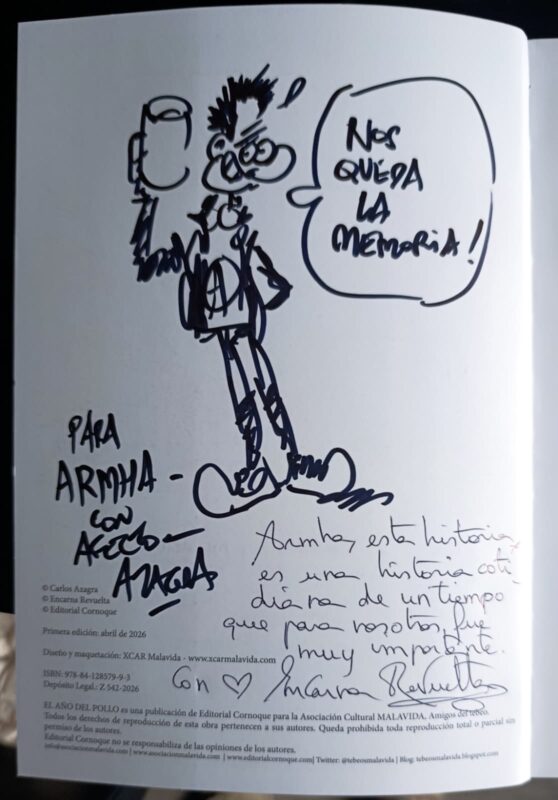 NOS
QUEDA
LA
MEMORIA!
PARA
ARMHA -
CON
AFECTO -
AZAGRA
Armha, esta historia
es una historia coti
diana de un tiempo
que para nosotros fue
muy importante.
Con ♡ Encarna Revuelta
© Carlos Azagra
© Encarna Revuelta
© Editorial Cornoque
Primera edición: abril de 2026
Diseño y maquetación: XCAR Malavida - www.xcarmalavida.com
ISBN: 978-84-128579-9-3
Depósito Legal.: Z 542-2026
EL AÑO DEL POLLO es una publicación de Editorial Cornoque para la Asociación Cultural MALAVIDA, Amigos del tebeo.
Todos los derechos de reproducción de esta obra pertenecen a sus autores. Queda prohibida toda reproducción total o parcial sin
permiso de los autores.
Editorial Cornoque no se responsabiliza de las opiniones de los autores.
info@asociacionmalavida.com | www.asociacionmalavida.com | www.editorialcornoque.com| Twitter: @tebeosmalavida | Blog: tebeosmalavida.blogspot.com